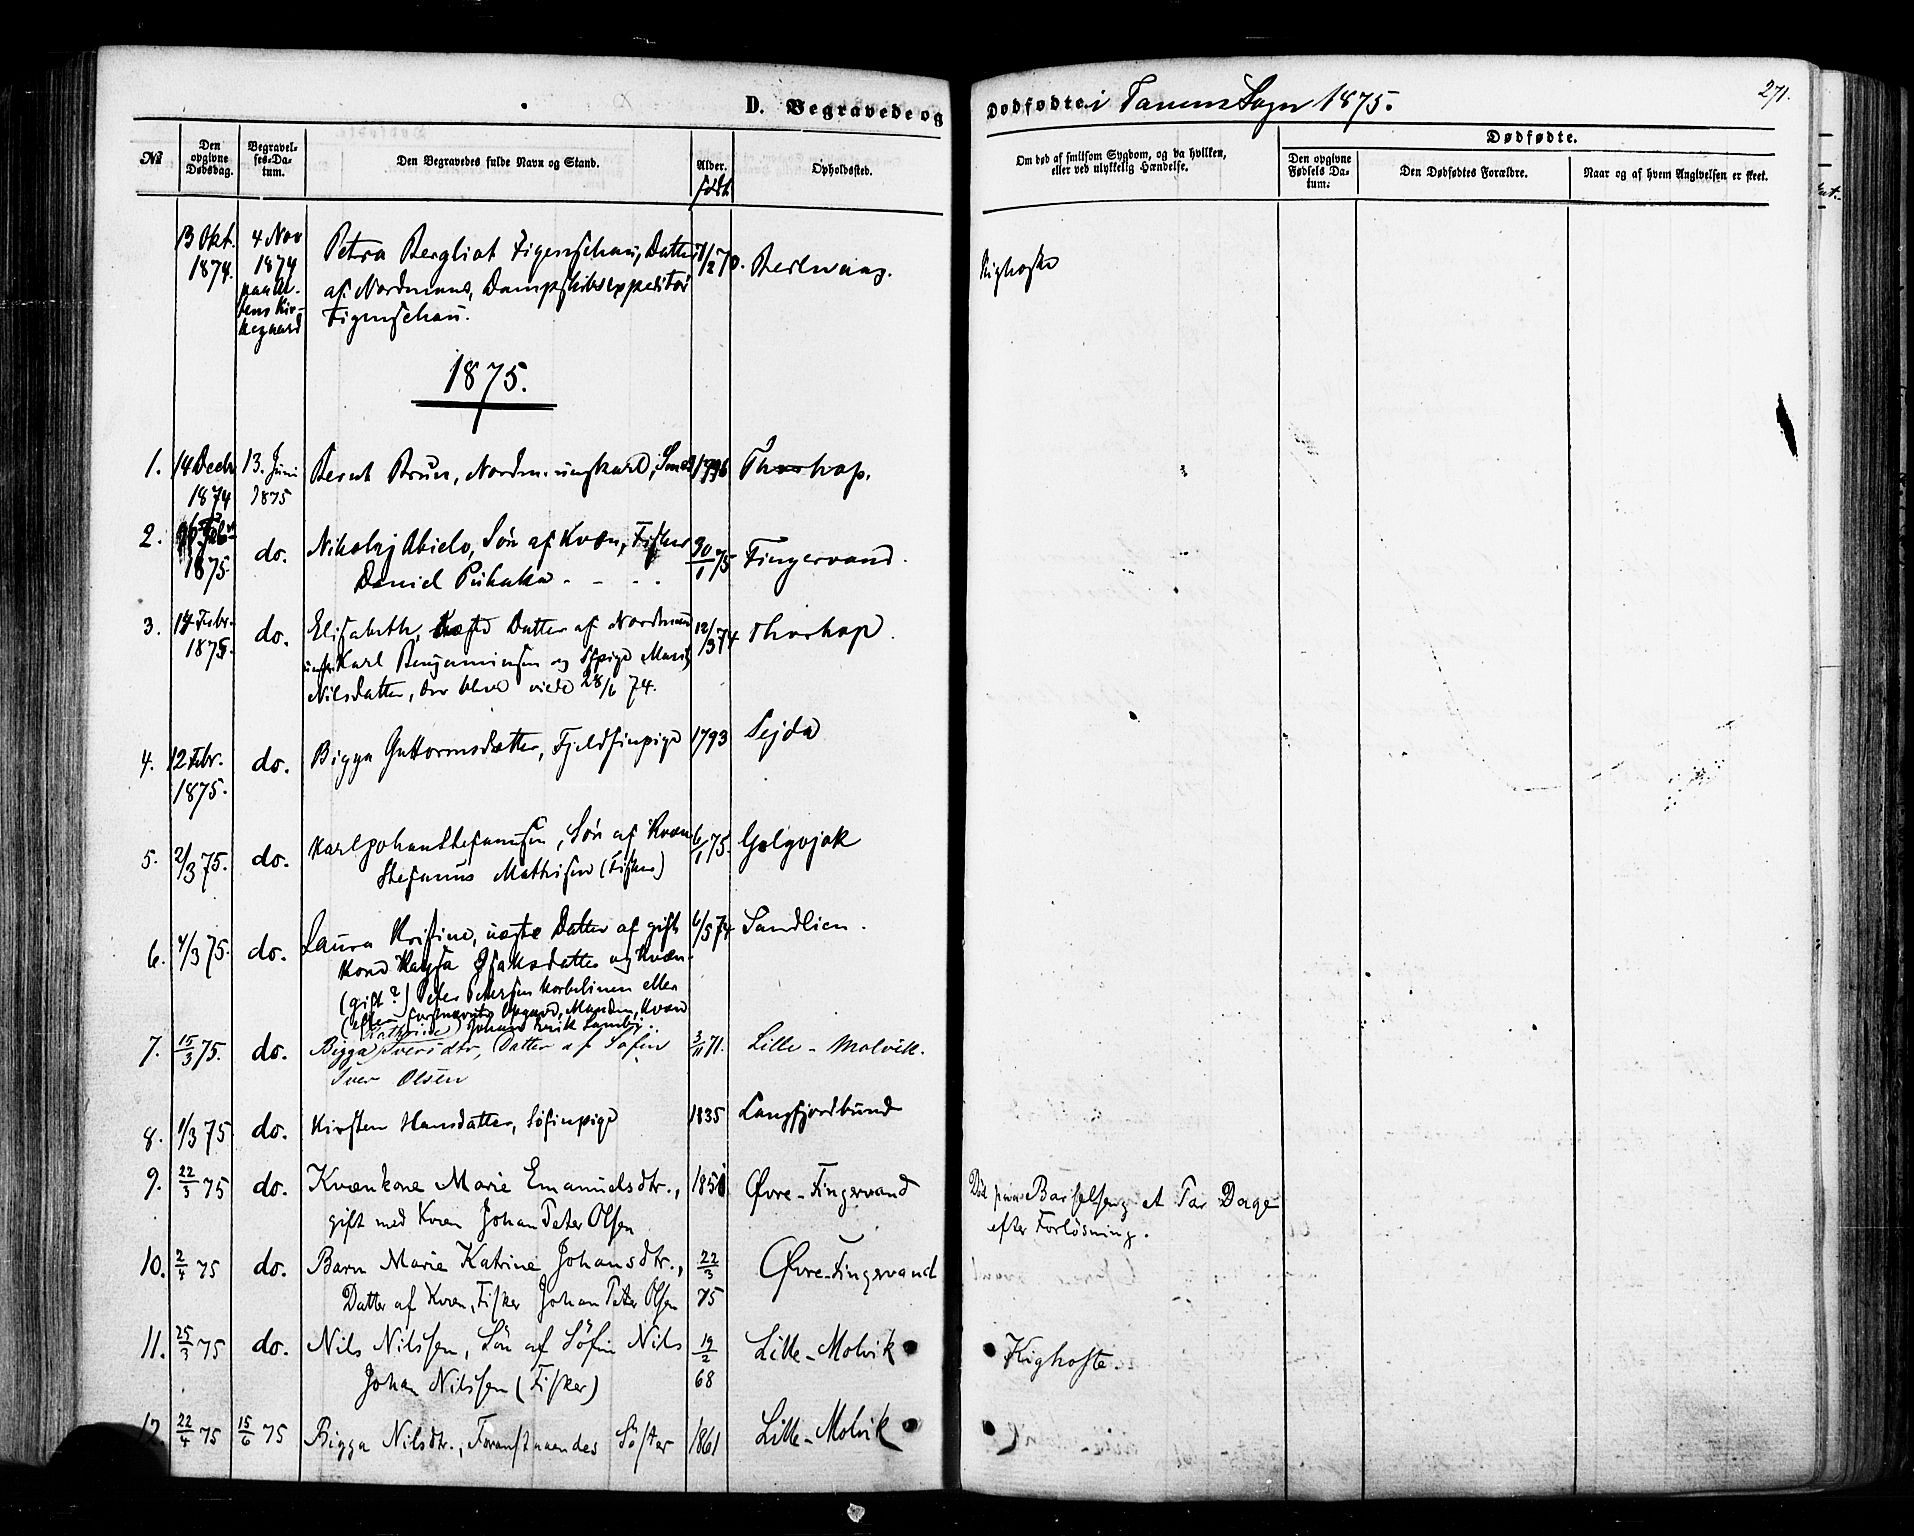 D. Begravede og Dødfødte i Tanens Sogn 1875.
271.
No
Den opgivne Dødsdag.
Begravelses-Datum.
Den Begravedes fulde Navn og Stand.
Alder.
født
Opholdssted.
Om død af smitsom Sygdom, og da hvilken, eller ved ulykkelig Hændelse.
Dødfødte.
Den opgivne Fødsels Datum:
Den Dødfødtes Forældre.
Naar og af hvem Angivelsen er skeet.
13 Okt. 1874.
4 Nov 1874
Kirkegaard
Petra Bergliot Figenschau, Datter
af Nordmand, Dampskibsexpeditør
Figenschau.
Kighoste
1875.
1. 14 Decbr 1874 13. Juni 1875 Bernt Brun, Nordm. ungkarl, 1796 Thorhop.
2. 1875. do. Nikolaj Abiel, Søn af Kvæn, Fisker 30/1 75 Fingervand.
Daniel
3. 14 Febr. 1875. do. Elisabeth, Datter af Nordmand 12/3 74 Thorhop.
Karl Benjaminsen og Pige Marit
Nilsdatter, der bleve viede 28/6 74.
4. 12 Febr. 1875. do. Bigga Guttormsdatter, Fjeldfinpige 1793 Sejda
5. 2/3 75. do. Karl Johan Stefanusen, Søn af Kvæn 6/1 75. Golgojok
Stefanus Mathisen (Fisker)
6. 4/3 75. do. Laura Kristine, uægte Datter af gift 6/5 74 Sandlien.
Kone Kaysa Isaksdatter og Kvæn
(gift?) Peter Petersen eller
Manden, Kvæn
Johan Erik
7. 15/3 75. do. Bigga Kathrine Iversdtr, Datter af Søfin 3/11 71. Lille-Molvik.
Iver Olsen
8. 1/3 75 do. Kirsten Hansdatter, Søfinpige 1835 Langfjordbund
9. 22/3 75 do. Kvænkone Marie Emanuelsdtr., Øvre-Fingervand
gift med Kvæn Johan Peter Olsen
Død paa Barselseng et Par Dage
efter Forløsning.
10. 2/4 75 do. Barn Marie Katrine Johansdtr., 22/3 75 Øvre-Fingervand
Datter af Kvæn, Fisker Johan Peter Olsen
11. 25/3 75 do. Nils Nilssen, Søn af Søfin Nils 19/2 68 Lille-Molvik Kighoste.
Johan Nilssen (Fisker)
12. 22/4 75 15/6 75 Bigga Nilsdtr., Foranstaaendes Søster 1861 Lille-Molvik